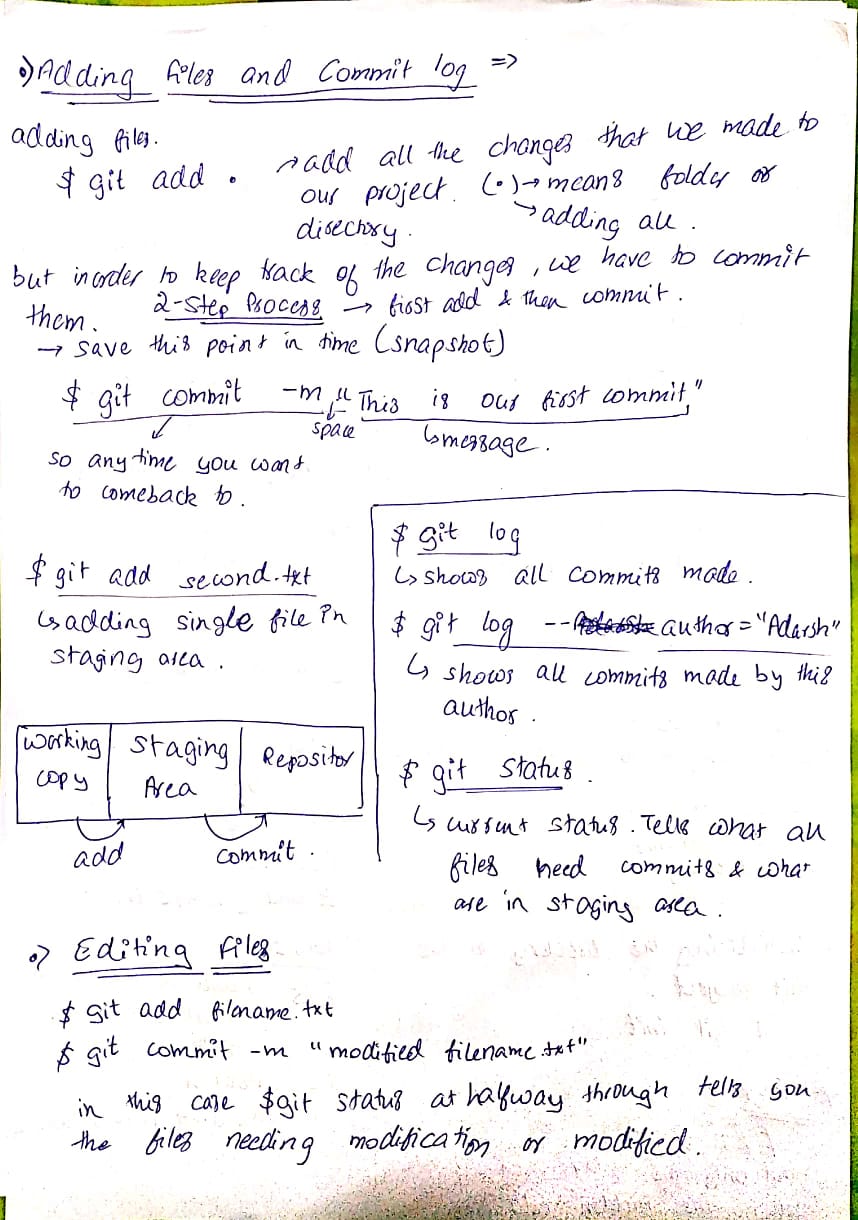 •) Adding files and Commit log =>
adding files.
$ git add .
→ add all the changes that we made to
our project. (•) → means folder or
directory.
→ adding all.
but inorder to keep track of the changes, we have to commit
them.
2-Step Process → first add & then commit.
→ save this point in time (snapshot)
$ git commit -m "This is our first commit"
space
↳ message.
so anytime you want
to comeback to.
$ git add second.txt
↳ adding single file in
staging area.
Working
copy
Staging
Area
Repository
add
commit.
$ git log
↳ shows all commits made.
$ git log -- author = "Adarsh"
↳ shows all commits made by this
author.
$ git status.
↳ current status. Tells what all
files need commits & what
are in staging area.
•) Editing files
$ git add filename.txt
$ git commit -m "modified filename.txt"
in this case $git status at halfway through tells you
the files needing modification or modified.